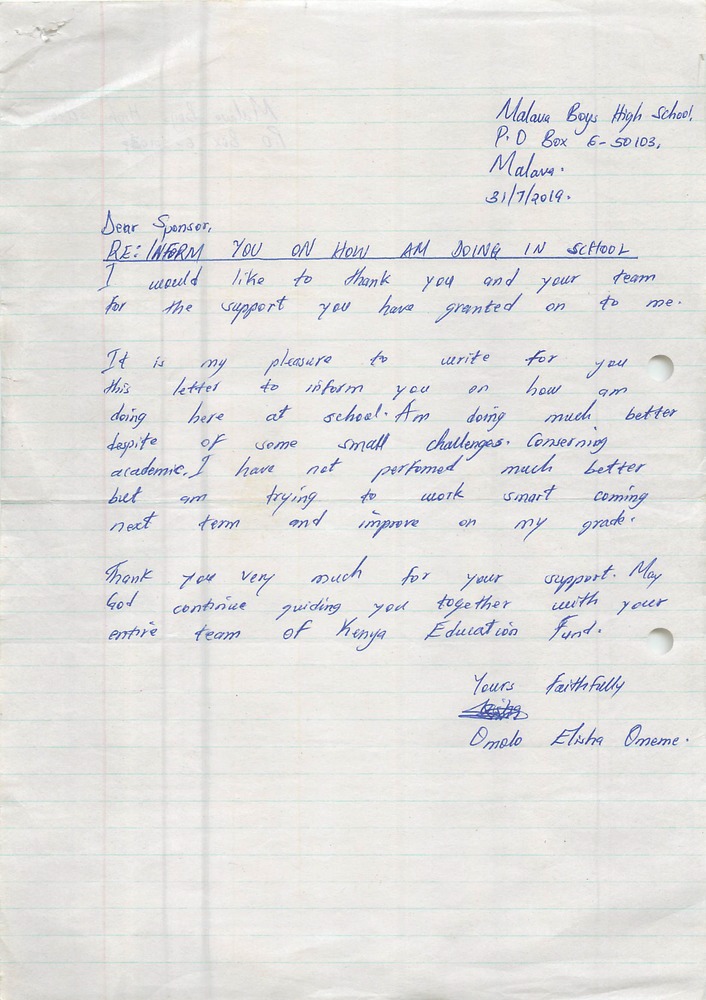 Malava Boys High School,
P.O Box 6-50103,
Malava.
31/7/2019.
Dear Sponsor,
RE: INFORM YOU ON HOW AM DOING IN SCHOOL
I would like to thank you and your team
for the support you have granted on to me.
It is my pleasure to write for you
this letter to inform you on how am
doing here at school. Am doing much better
despite of some small challenges. Conserning
academic, I have not perfomed much better
but am trying to work smart coming
next term and improve on my grade.
Thank you very much for your support. May
God continue guiding you together with your
entire team of Kenya Education Fund.
Yours Faithfully
Omolo Elisha Omeme.